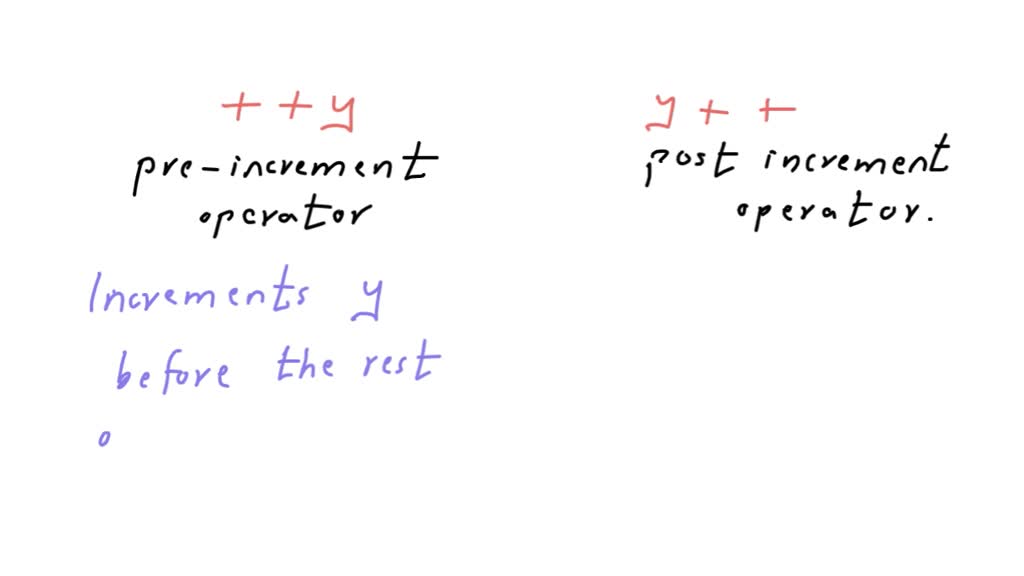 ++y
pre-increment
operator
Increments y
before the rest
o
y++
post increment
operator.